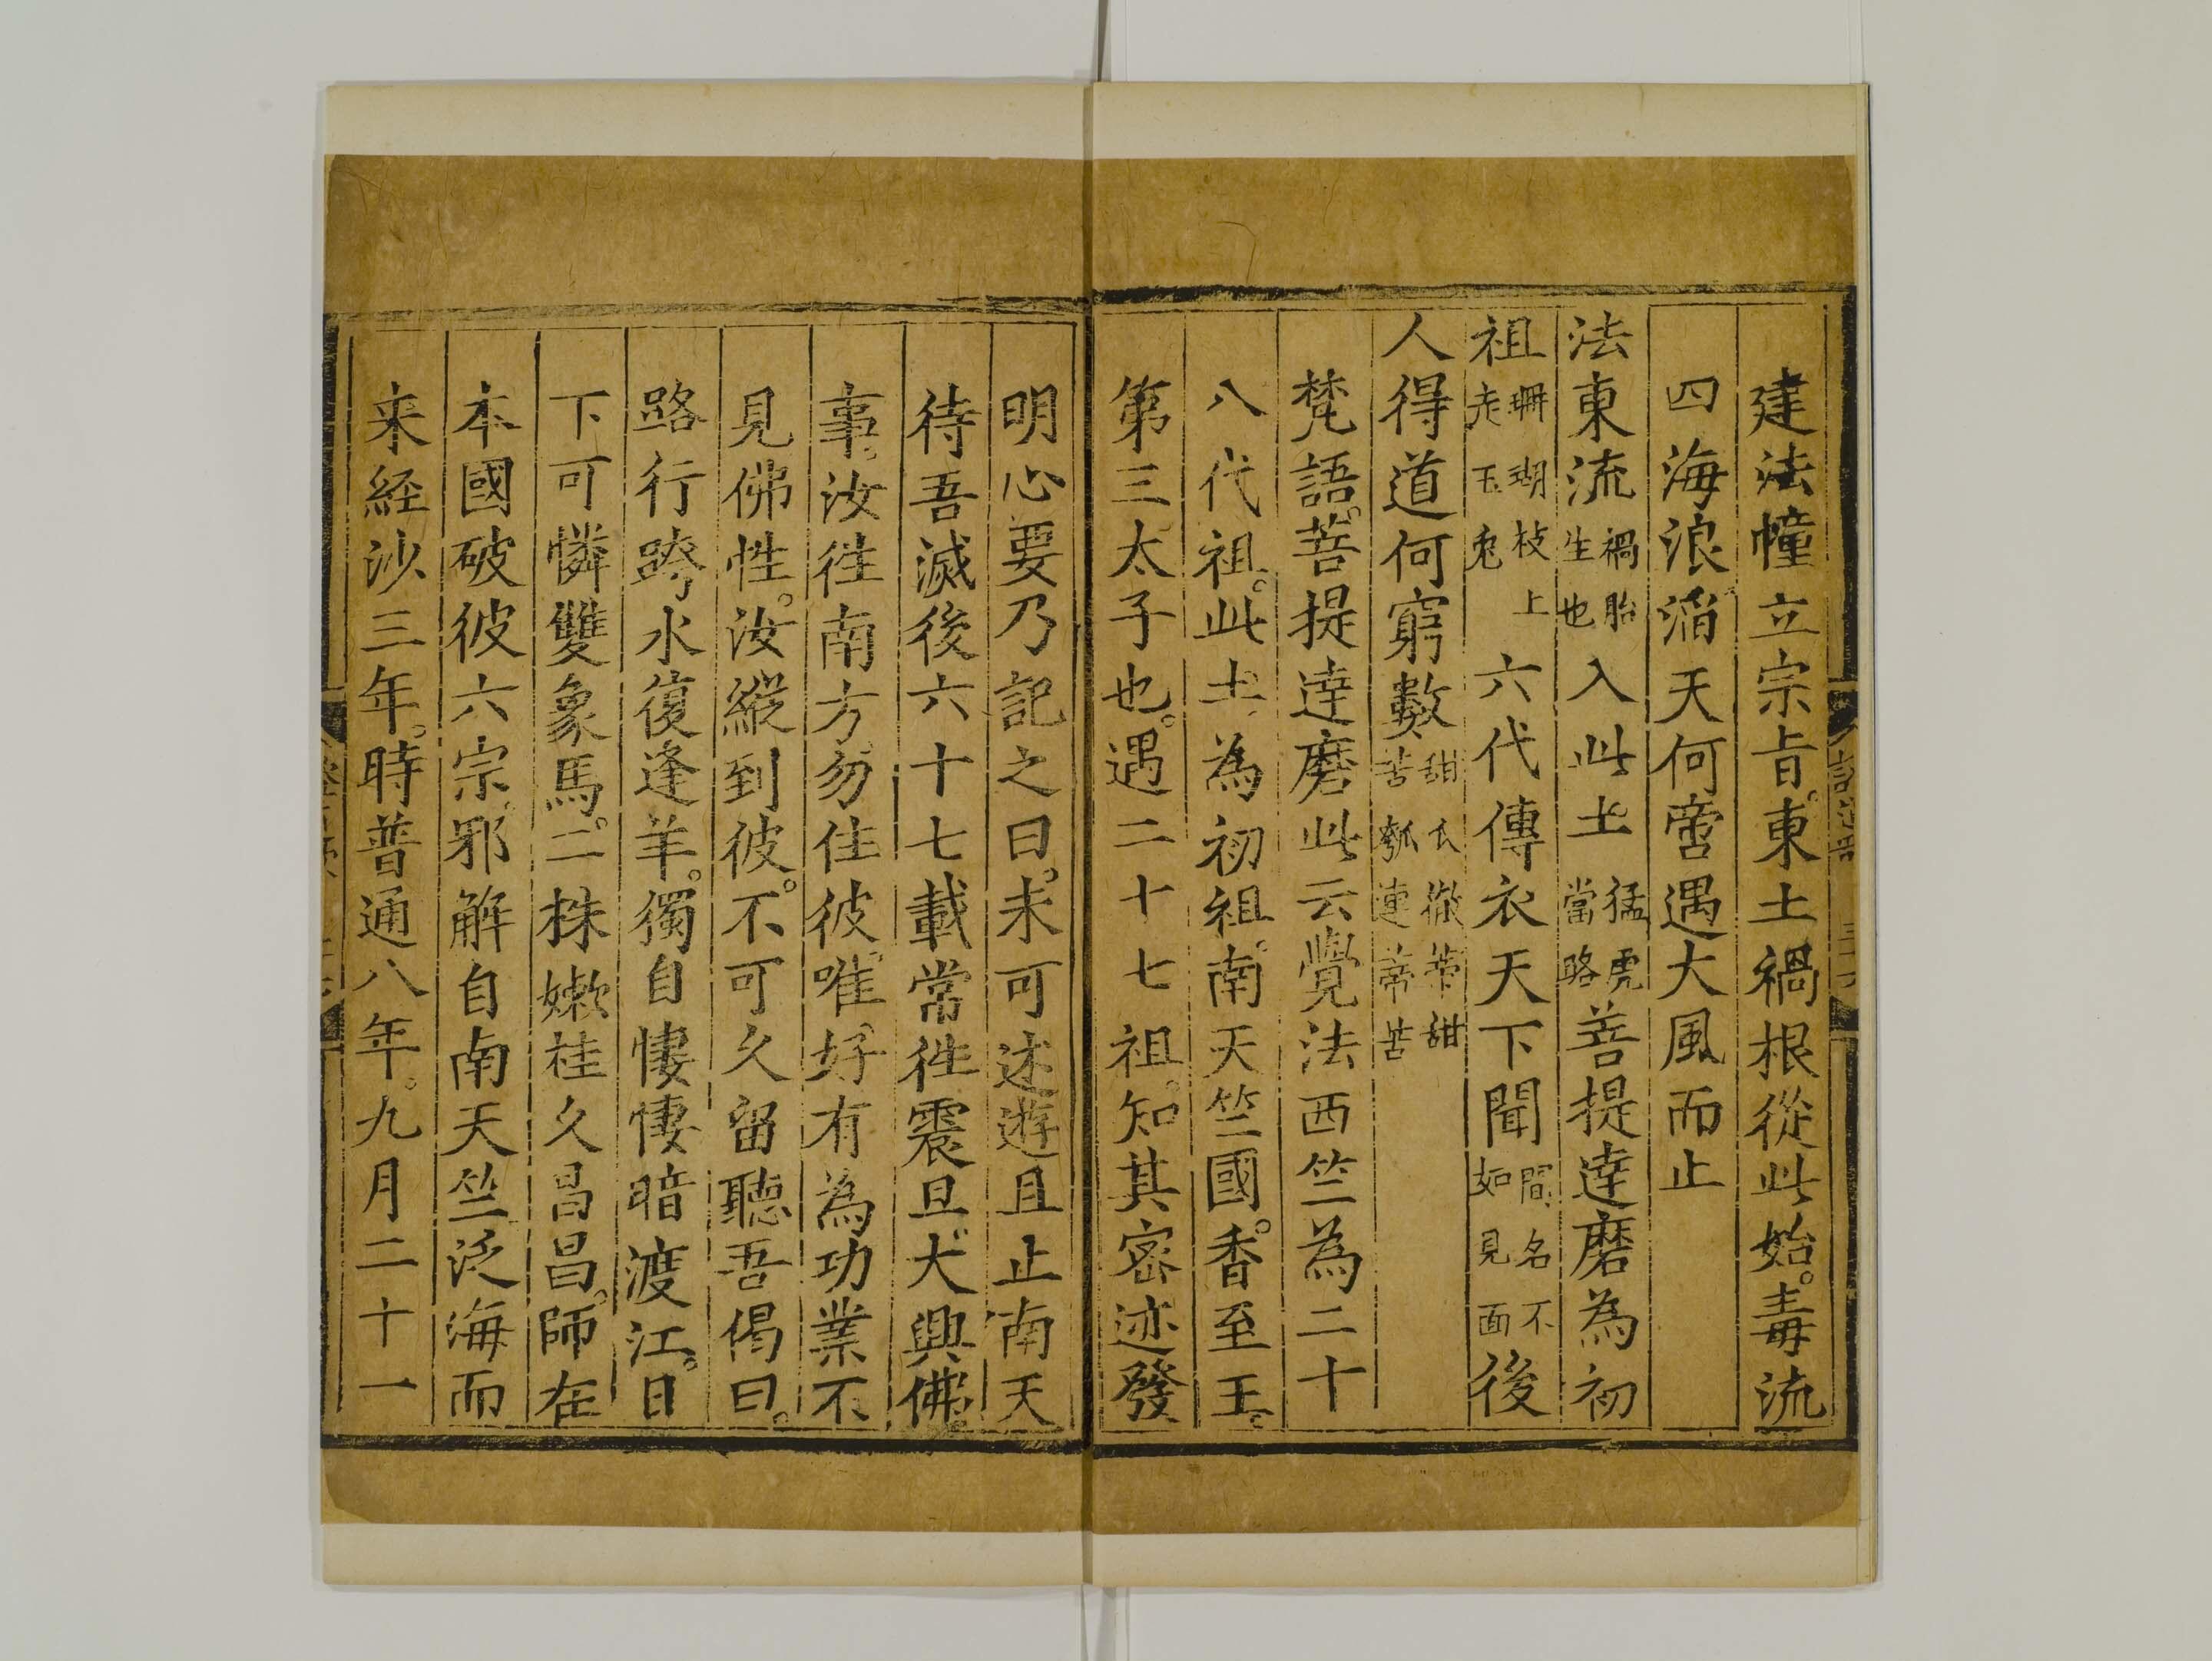 建法幢立宗旨。東土禍根從此始。毒流
四海浪滔天何啻遇大風而止
法東流禍胎生也入此土猛虎當路菩提達磨為初
祖珊瑚枝上走玉兎六代傳衣天下聞聞名不如見面後
人得道何窮數甜瓜徹蒂甜苦瓠連蒂苦
梵語。菩提達磨此云覺法西竺為二十
八代祖。此土為初祖。南天竺國。香至王。
第三太子也。遇二十七祖。知其密迹發
明心要乃記之曰。未可述遊且止南天
待吾滅後六十七載當徃震旦。大興佛
事。汝徃南方勿住彼。唯好有為功業不
見佛性。汝縱到彼。不可久留聽吾偈曰。
路行跨水復逢羊。獨自悽悽暗渡江。日
下可憐雙象馬。二株嫩桂久昌昌。師在
本國破彼六宗邪解自南天竺泛海而
来経沙三年。時普通八年。九月二十一